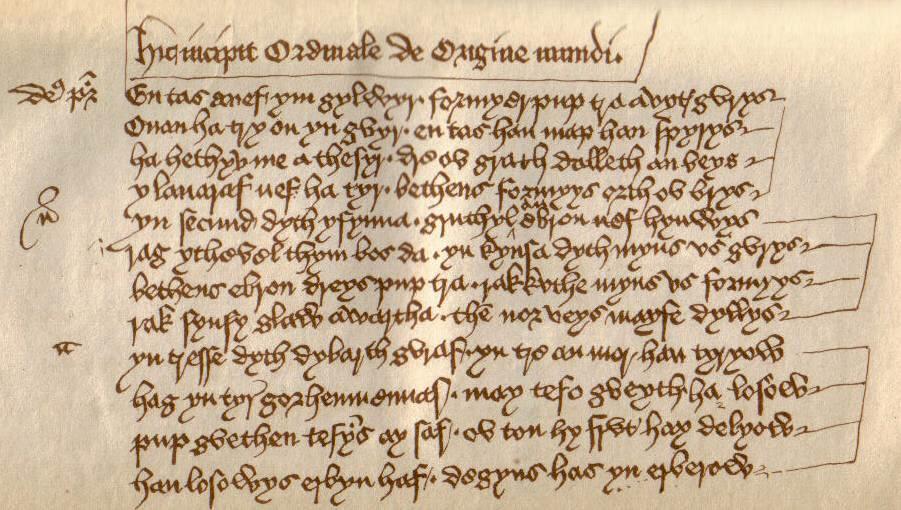 hic incipit Ordinale de Origine mundi.
deus pater En tas a nef ym gylwyr · formyer pup tra a vyt gvrys
Onan ha try on yn gvyr · en tas han map han spyrys
ha hethyv me a thesyr · dre ov grath dalleth an beys
y lavaraf nef ha tyr · bethens formyys orth ov brys
yn secund dyth y fynna · gruthyl ebron nef hynwys
rag ythevel thym bos da · yn kynsa dyth myns vs gvrys
bethens ebron dreys pup tra · rak kvthe myns vs formyys
rak synsy glaw awartha · the nor veys may fe dyllys
yn tresse dyth dybarth gvraf · yn tre an mor han tyryow
hag yn tyr gorhemmennaf · may tefo gveyth ha losow
pup gvethen tefyns ay saf · ov ton hy frvt hay delyow
han losowys erbyn haf · degyns has yn erberow